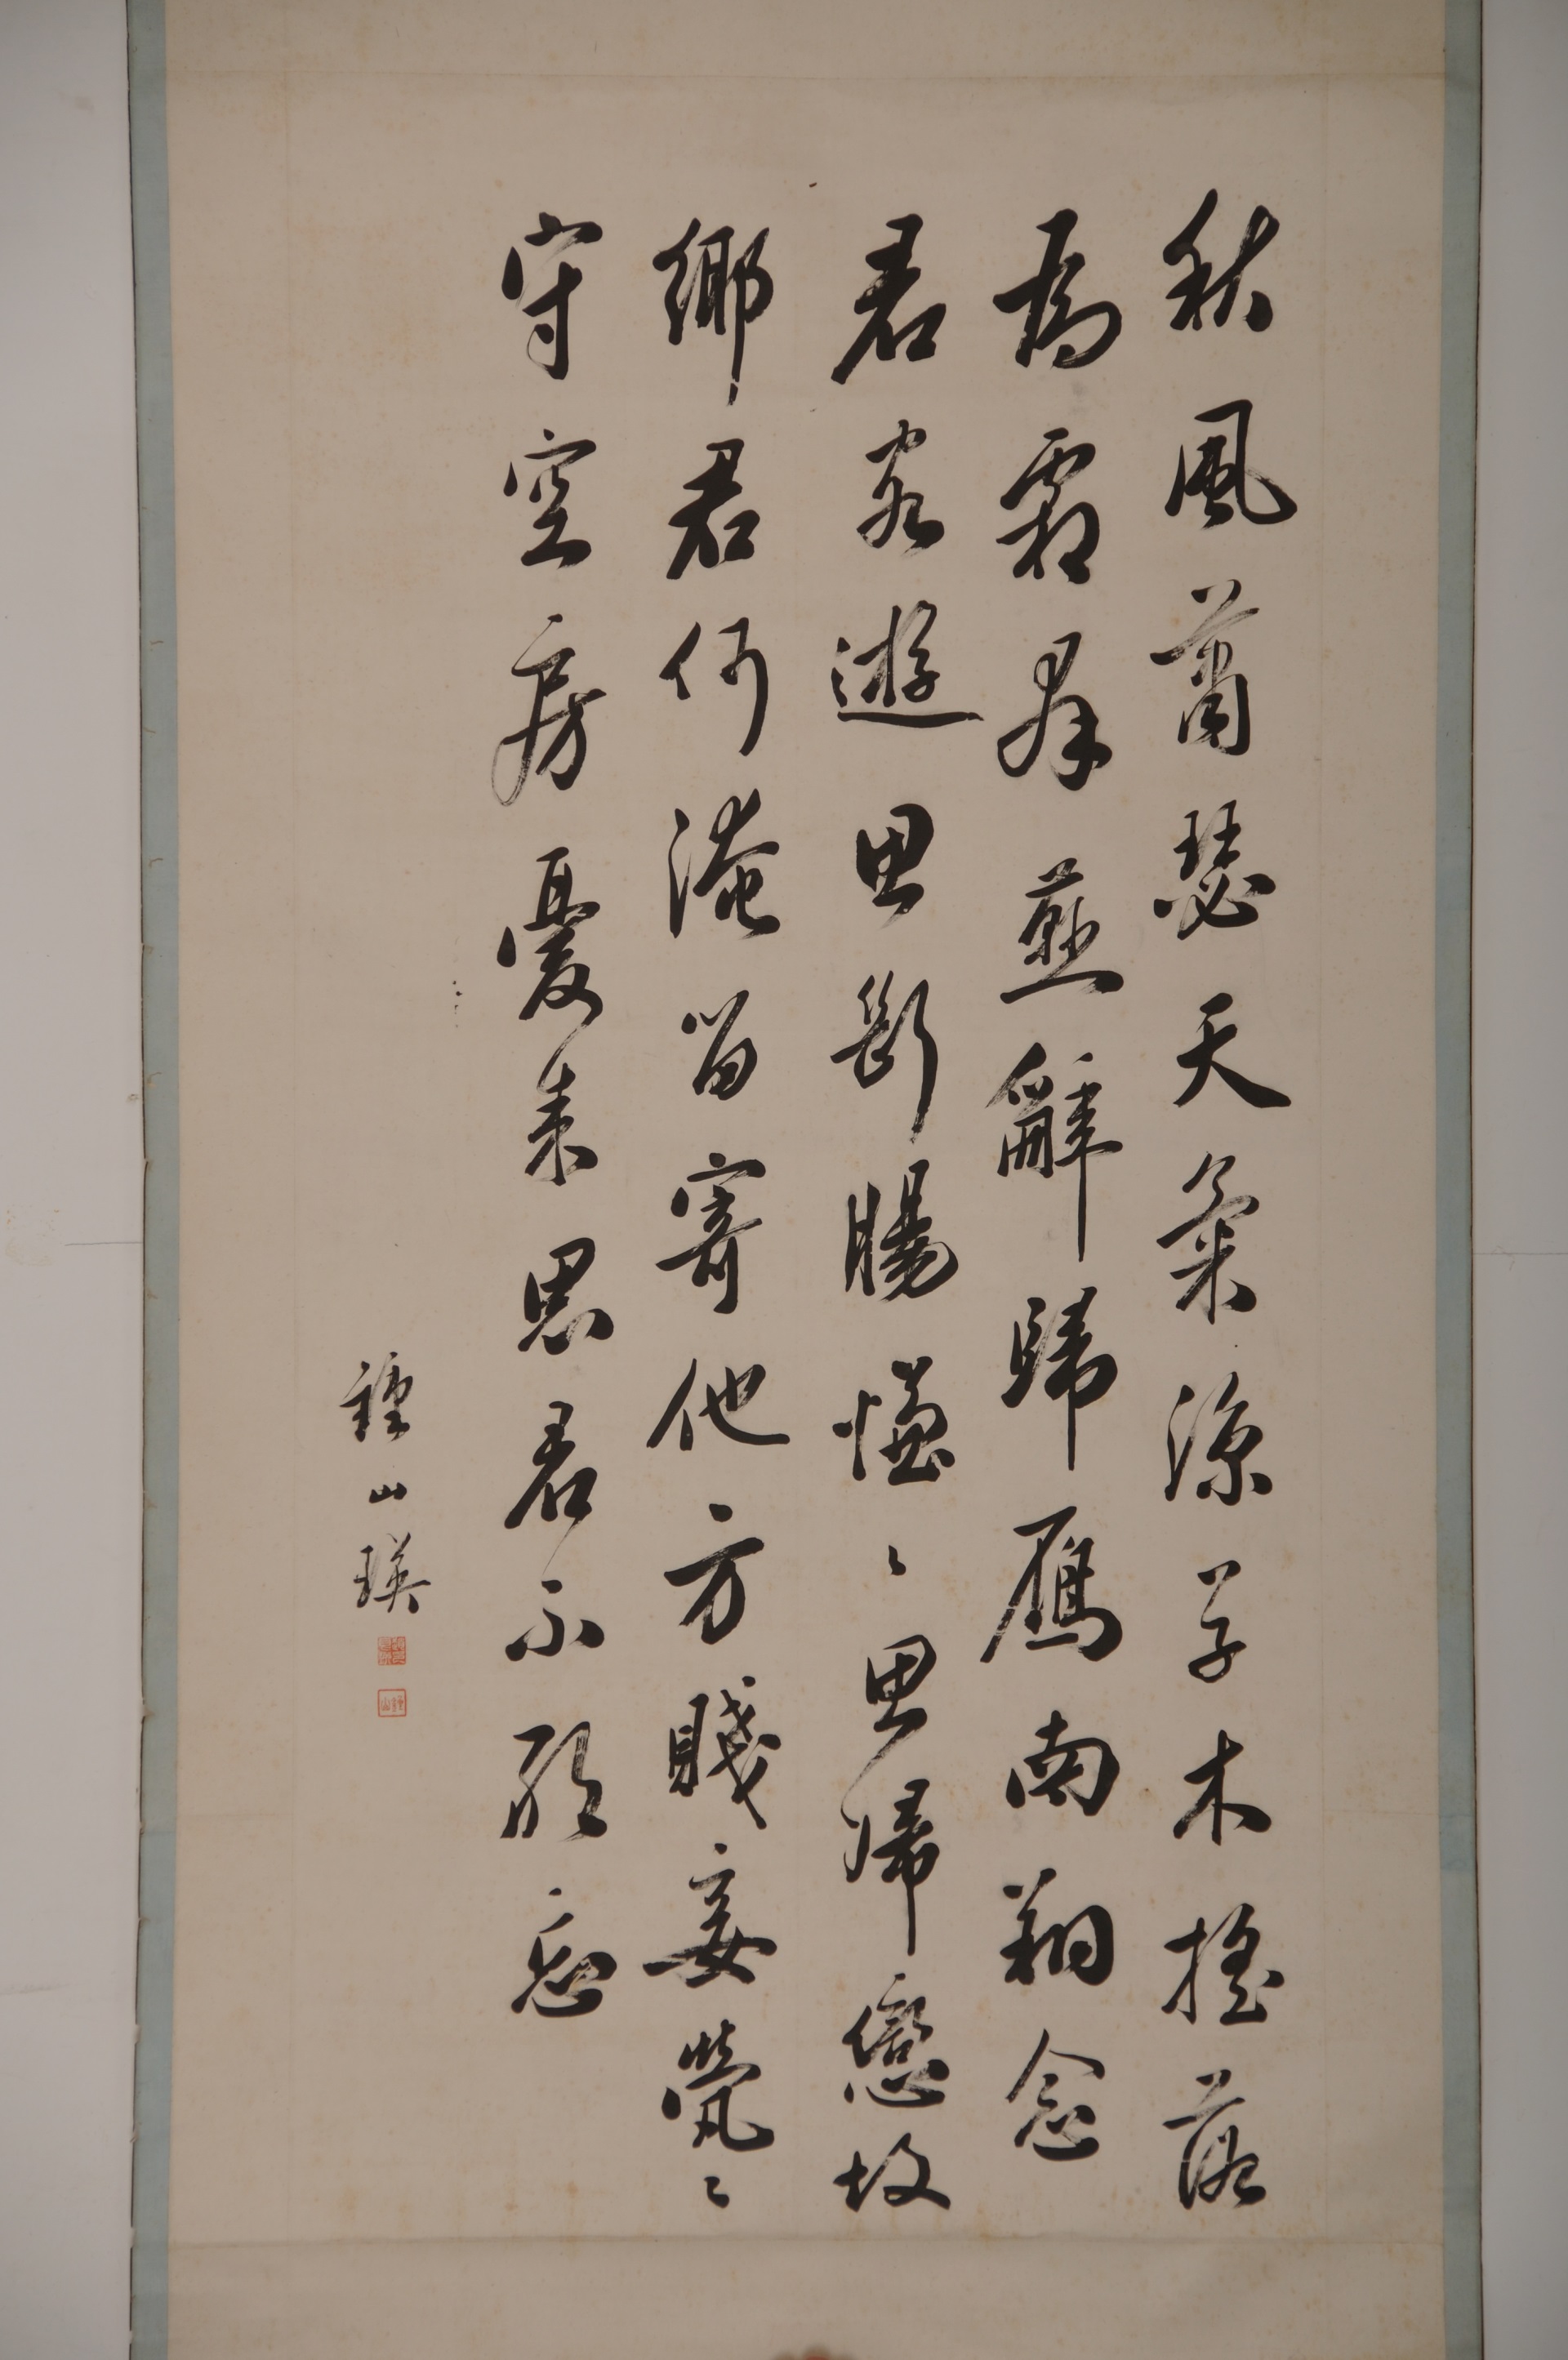 秋風蕭瑟天氣涼草木搖落
為霜群燕辭歸鴈南翔念
君客遊思斷腸慊〻思歸戀故
鄉君何淹留寄他方賤妾煢〻
守空房憂來思君不敢忘
鍾山瑛